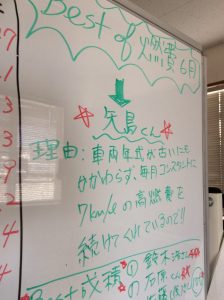 Best of 燃費 6月
矢島くん
理由：車両年式が古いにも
かかわらず、毎月コンスタントに
7km/ℓの高燃費を
続けてくれているので!!
Best成績の 鈴木
の 石原くん
7
1
3
3
9
2
4
4